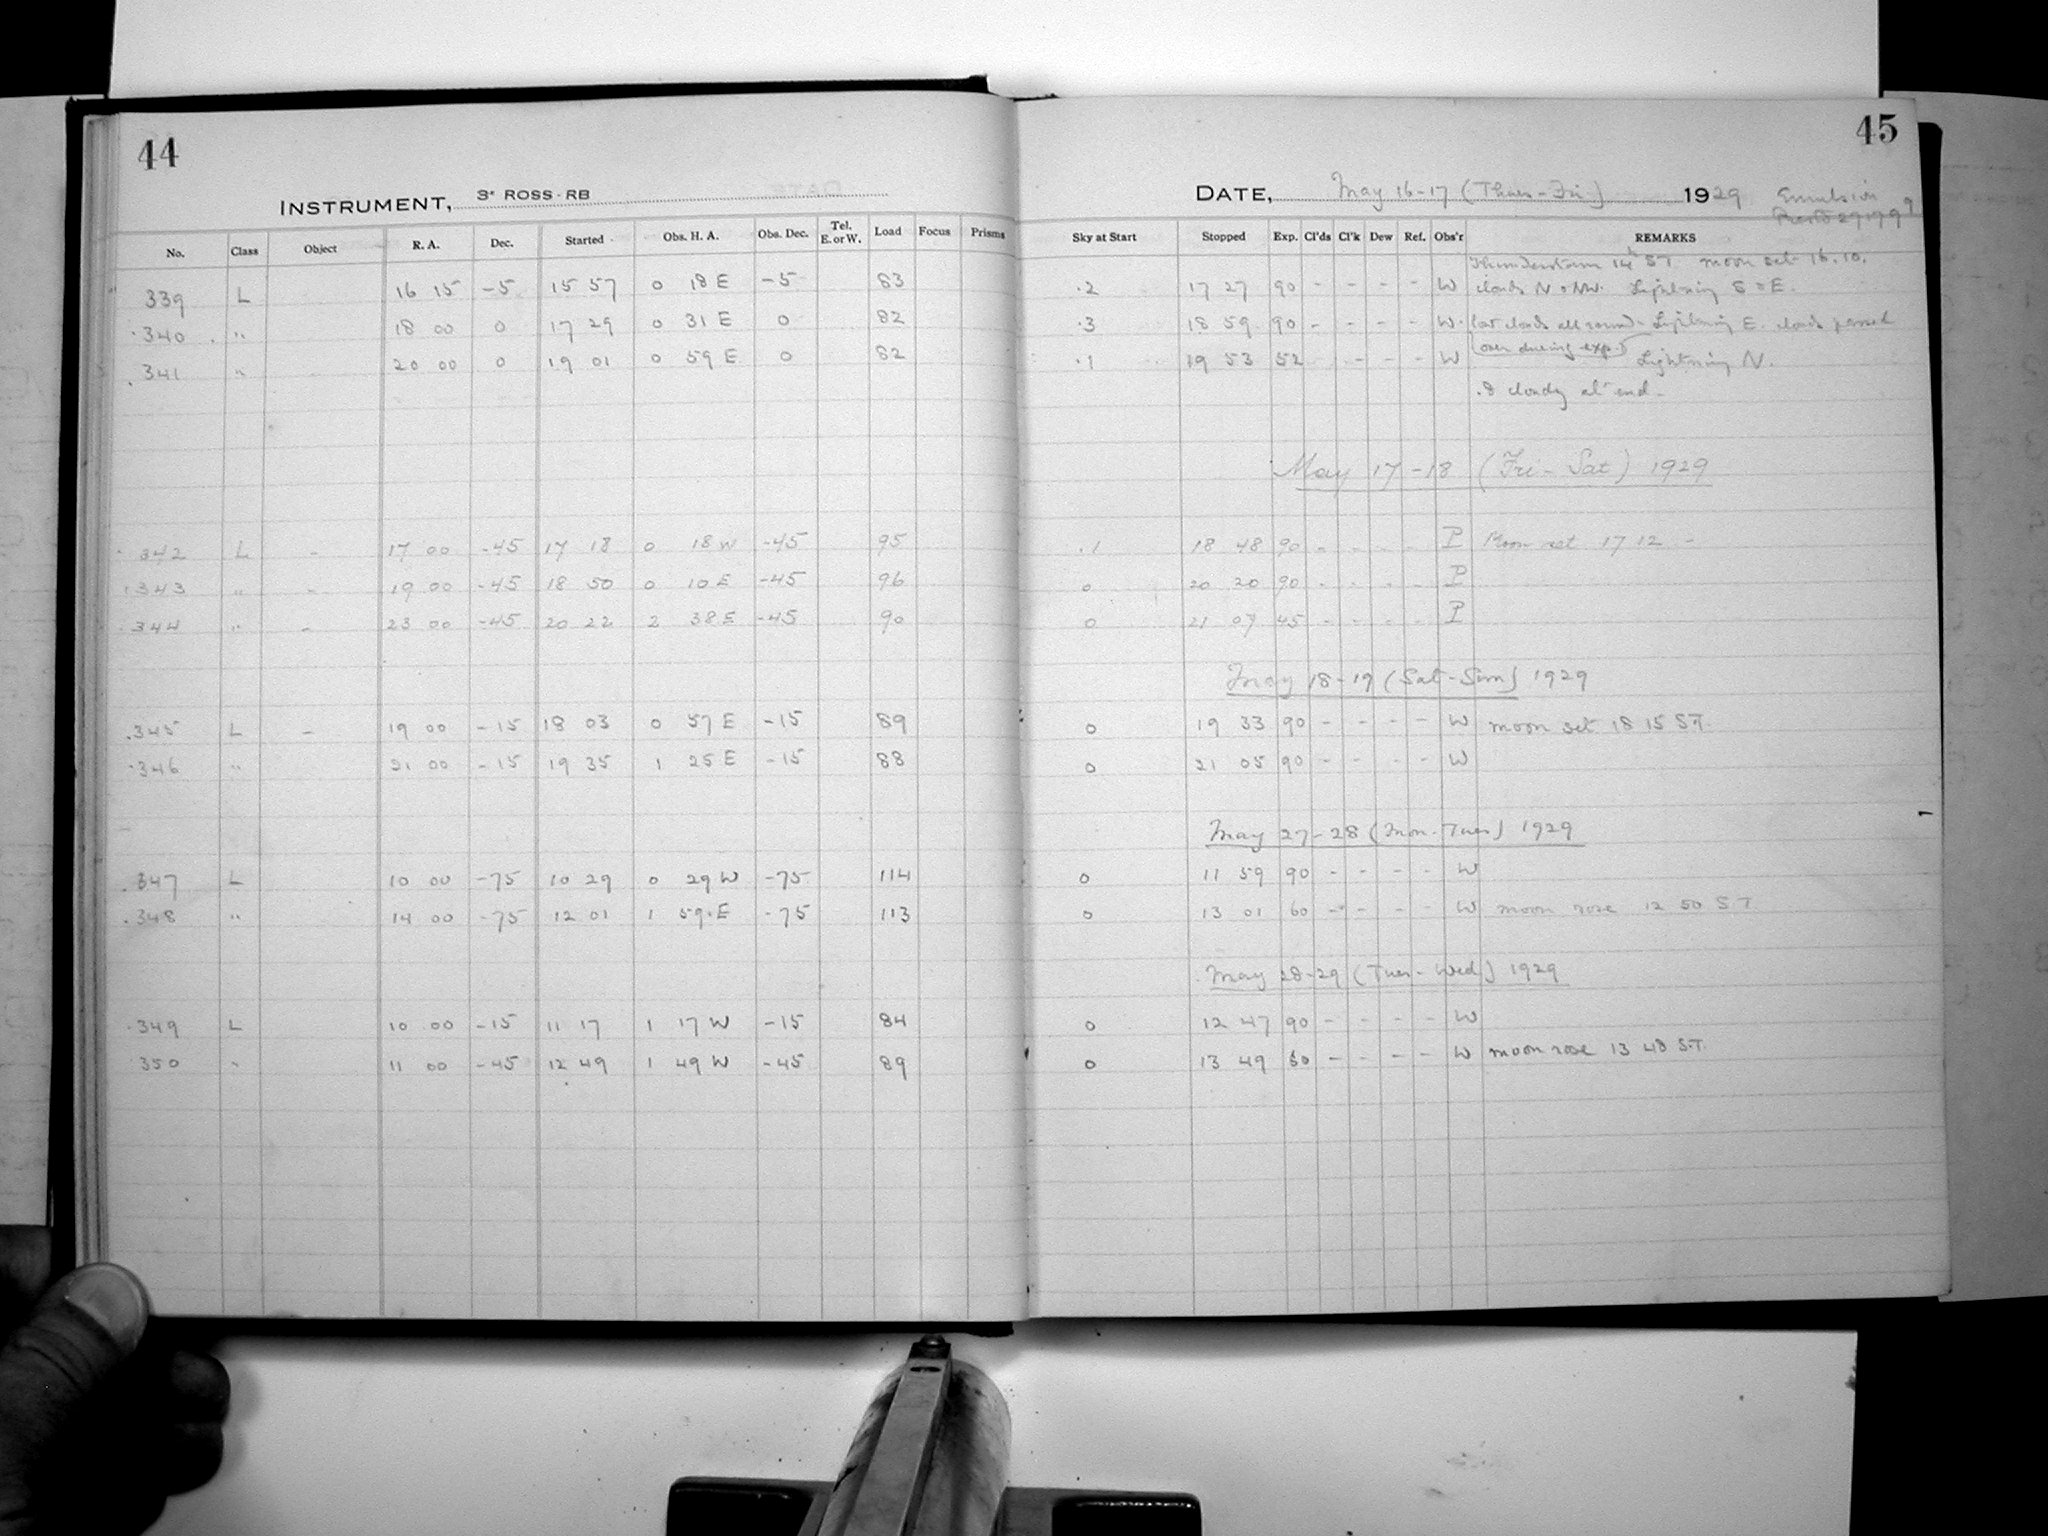 44
INSTRUMENT, 3" ROSS-RB
No. Class Object R. A. Dec. Started Obs. H. A. Obs. Dec. Tel. E. or W. Load Focus Prisms
339 L 16 15 -5 15 57 0 18 E -5 83
340 " 18 00 0 17 29 0 31 E 0 82
341 " 20 00 0 19 01 0 59 E 0 82
342 L - 17 00 -45 17 18 0 18 W -45 95
343 " - 19 00 -45 18 50 0 10 E -45 96
344 " - 23 00 -45 20 22 2 38 E -45 90
345 L - 19 00 -15 18 03 0 57 E -15 89
346 " 21 00 -15 19 35 1 25 E -15 88
347 L 10 00 -75 10 29 0 29 W -75 114
348 " 14 00 -75 12 01 1 59 E -75 113
349 L 10 00 -15 11 17 1 17 W -15 84
350 " 11 00 -45 12 49 1 49 W -45 89
45
DATE, May 16-17 (Thurs-Fri) 1929 Emulsion
Sky at Start Stopped Exp. Cl'ds Cl'k Dew Ref. Obs'r REMARKS
Thunderstorm 14h ST. moon set 16.10.
.2 17 27 90 - - - - W clouds N + NW. Lightning S + E.
.3 18 59 90 - - - - W. low clouds all round - Lightning E. clouds passed
over during exp.)
.1 19 53 52 - - - - W Lightning N.
.8 cloudy at end.
May 17-18 (Fri-Sat) 1929
.1 18 48 90 - - - - P Moon set 17 12 -
0 20 20 90 - - - - P
0 21 07 45 - - - - P
May 18-19 (Sat-Sun) 1929
0 19 33 90 - - - - W moon set 18 15 S.T.
0 21 05 90 - - - - W
May 27-28 (Mon-Tues) 1929
0 11 59 90 - - - - W
0 13 01 60 - - - - W moon rose 12 50 ST
May 28-29 (Tues-Wed) 1929
0 12 47 90 - - - - W
0 13 49 60 - - - - W moon rose 13 48 S.T.